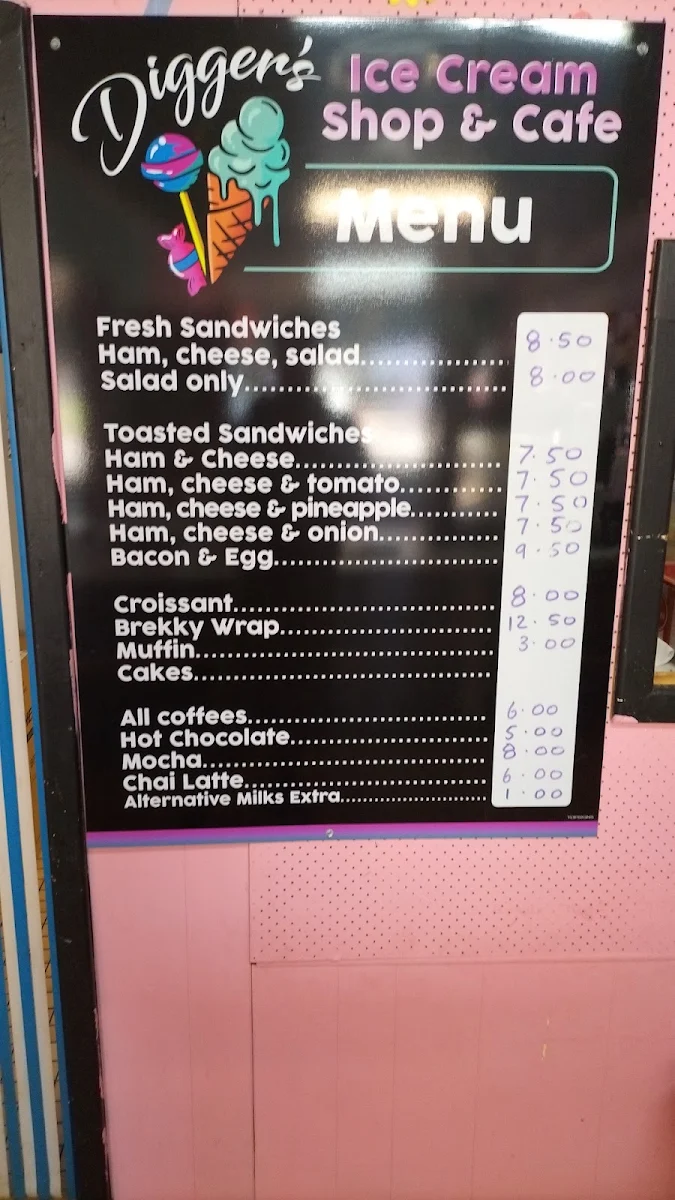 Digger's
Ice Cream
Shop & Cafe
Menu
Fresh Sandwiches
Ham, cheese, salad........................ 8.50
Salad only........................ 8.00
Toasted Sandwiches
Ham & Cheese........................ 7.50
Ham, cheese & tomato............... 7.50
Ham, cheese & pineapple............. 7.50
Ham, cheese & onion.................. 7.50
Bacon & Egg........................ 9.50
Croissant........................ 8.00
Brekky Wrap........................ 12.50
Muffin........................ 3.00
Cakes........................
All coffees........................ 6.00
Hot Chocolate........................ 5.00
Mocha........................ 8.00
Chai Latte........................ 6.00
Alternative Milks Extra........................ 1.00